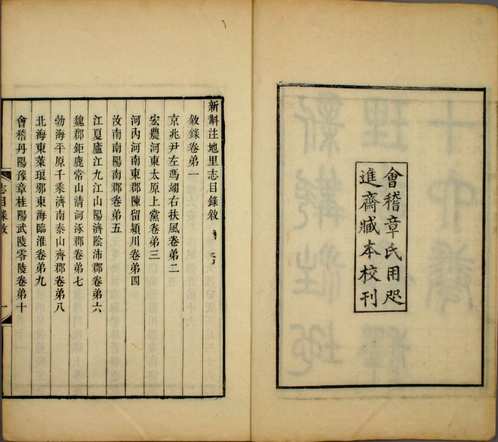 會稽章氏用咫
進齋臧本校刊
新斠注地里志目錄敘
敘錄卷弟一
京兆尹左馮翊右扶風卷弟二
宏農河東太原上黨卷弟三
河內河南東郡陳留潁川卷弟四
汝南南陽南郡卷弟五
江夏廬江九江山陽濟陰沛郡卷弟六
魏郡鉅鹿常山清河涿郡卷弟七
勃海平原千乘濟南泰山齊郡卷弟八
北海東萊琅邪東海臨淮卷弟九
會稽丹陽豫章桂陽武陵零陵卷弟十
志目錄敘
一